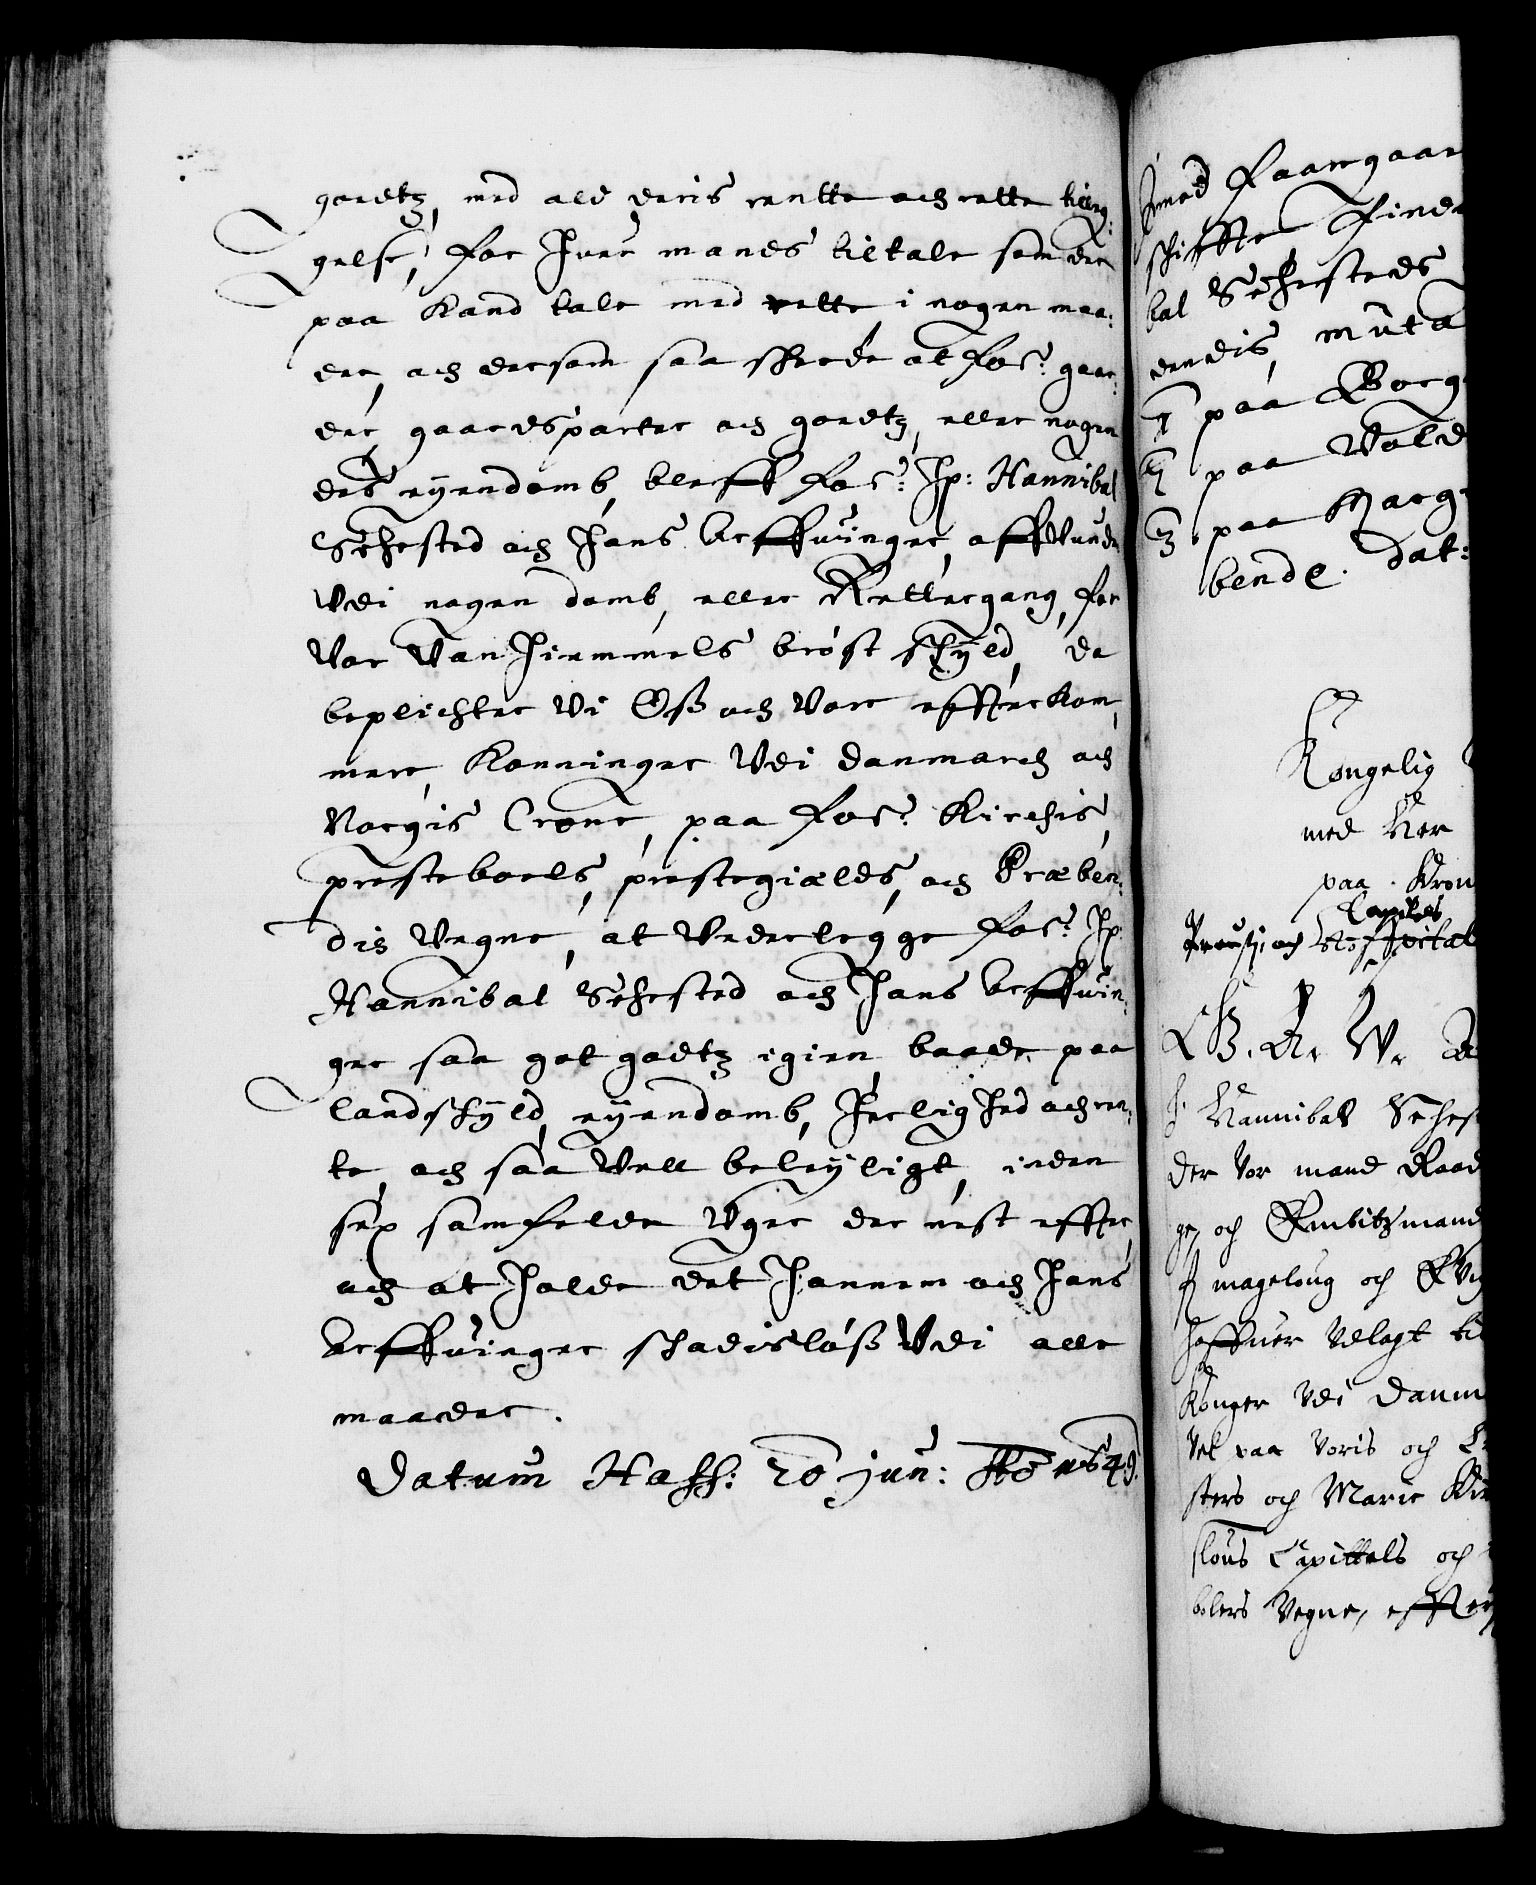 goedtz, med ald deris rentte och rette tilleg:
gelse, for huer mands tiltale som der
paa kand tale med rette i nogen maa:
der, och dersom saa skeede at for:ne gaar:
der, gaardsparter och goedtz, eller nogen
des eyendomb, bleff for:ne Hr: Hannibal
Sehested och hans Arffuinger, affvunden
Vdi nogen domb, eller Rettergang, for
Vor Vanhiemmels bröst skyld, da
beplichter Vi Oß och Vore effterkom,
mere, Konninger Vdi Danmarch och
Norgis Crone, paa for:ne Kirchis,
presteboels, prestegiælds, och Præben:
dis Vegne, at Vederlegge for:ne Hr:
Hannibal Sehested och hans Arffuin:
ger saa got godtz igien, baade paa
landskyld, eyendomb, herlighed och ren:
te, och saa Vell beleyligt, inden
sex samfelde Vger der nest effter,
och at holde det hannem och hans
Arffuinger skadisløß Vdi alle
maader.
Datum Haff: 20 Jun: Ao 1649.
med Faaregaar
skiffte Finde
bal Sehesteds
dendis, muta
1 paa Borg
2 paa Vold
3 paa Marg
bende. dat:
Kongelig
med Her
paa Kron
Capitels
Proustj och Hospital
C. A. W. A
H Hannibal Sehest
der Vor mand Raad
ge, och Embitzmand
H mageloug och Evig
haffuer Vdlagt til
Konger Vdi Danm
Vel paa Voris och C
sters och Marie Kir
slous Capittels och
bolers Vegne, effter